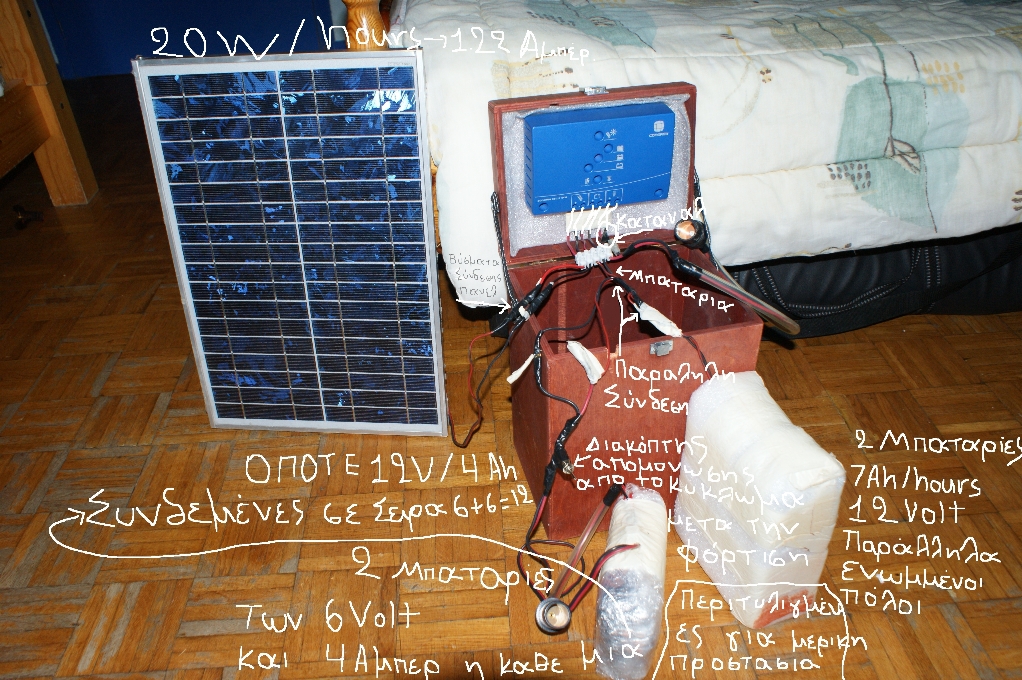 20W/hours→1.22 Αμπερ.
Καταναλ
Βύσματα
Σύνδεσης
Πανελ
←Μπαταρια
Παραληλη
Σύνδεση
Διακόπτης
απομονωσης
απο το κυκλωμα
μετα την
φόρτιση
2 Μπαταρίες
7Ah/hours
12 Volt
Παράλληλα
ενωμμένοι
πολοι
ΟΠΟΤΕ 12V/4 Ah
Συνδεμένες σε Σειρα 6+6=12
2 Μπαταριες
Των 6 Volt
και 4 Αμπερ η καθε μια
Περιτυλιγμέν
ες για μερικη
προστασια